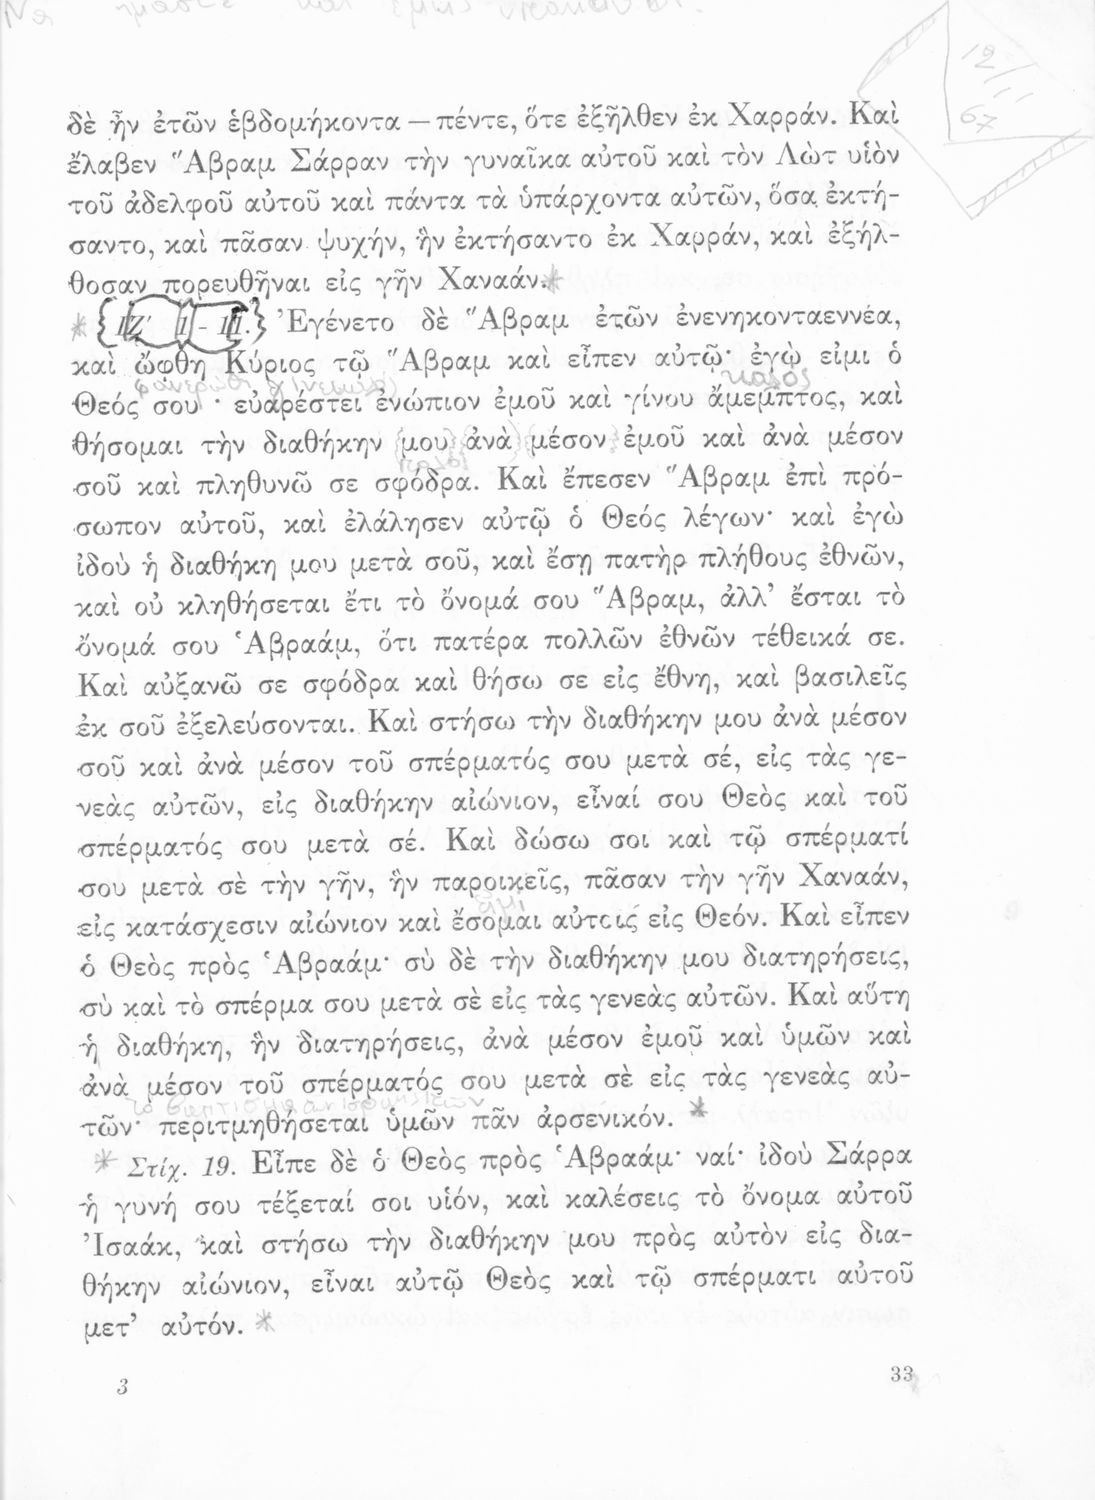 12/
67
δὲ ἦν ἐτῶν ἑβδομήκοντα — πέντε, ὅτε ἐξῆλθεν ἐκ Χαρράν. Καὶ
ἔλαβεν Ἅβραμ Σάρραν τὴν γυναῖκα αὐτοῦ καὶ τὸν Λὼτ υἱὸν
τοῦ ἀδελφοῦ αὐτοῦ καὶ πάντα τὰ ὑπάρχοντα αὐτῶν, ὅσα ἐκτή-
σαντο, καὶ πᾶσαν ψυχήν, ἣν ἐκτήσαντο ἐκ Χαρράν, καὶ ἐξήλ-
θοσαν πορευθῆναι εἰς γῆν Χαναάν.
ΙΖ′ 1 - 11. Ἐγένετο δὲ Ἅβραμ ἐτῶν ἐνενηκονταεννέα,
καὶ ὤφθη Κύριος τῷ Ἅβραμ καὶ εἶπεν αὐτῷ· ἐγώ εἰμι ὁ
Θεός σου · εὐαρέστει ἐνώπιον ἐμοῦ καὶ γίνου ἄμεμπτος, καὶ
θήσομαι τὴν διαθήκην μου ἀνὰ μέσον ἐμοῦ καὶ ἀνὰ μέσον
σοῦ καὶ πληθυνῶ σε σφόδρα. Καὶ ἔπεσεν Ἅβραμ ἐπὶ πρό-
σωπον αὐτοῦ, καὶ ἐλάλησεν αὐτῷ ὁ Θεός λέγων· καὶ ἐγὼ
ἰδοὺ ἡ διαθήκη μου μετὰ σοῦ, καὶ ἔσῃ πατὴρ πλήθους ἐθνῶν,
καὶ οὐ κληθήσεται ἔτι τὸ ὄνομά σου Ἅβραμ, ἀλλ’ ἔσται τὸ
ὄνομά σου Ἁβραάμ, ὅτι πατέρα πολλῶν ἐθνῶν τέθεικά σε.
Καὶ αὐξανῶ σε σφόδρα καὶ θήσω σε εἰς ἔθνη, καὶ βασιλεῖς
ἐκ σοῦ ἐξελεύσονται. Καὶ στήσω τὴν διαθήκην μου ἀνὰ μέσον
σοῦ καὶ ἀνὰ μέσον τοῦ σπέρματός σου μετὰ σέ, εἰς τὰς γε-
νεὰς αὐτῶν, εἰς διαθήκην αἰώνιον, εἶναί σου Θεὸς καὶ τοῦ
σπέρματός σου μετὰ σέ. Καὶ δώσω σοι καὶ τῷ σπέρματί
σου μετὰ σὲ τὴν γῆν, ἣν παροικεῖς, πᾶσαν τὴν γῆν Χαναάν,
εἰς κατάσχεσιν αἰώνιον καὶ ἔσομαι αὐτοῖς εἰς Θεόν. Καὶ εἶπεν
ὁ Θεὸς πρὸς Ἁβραάμ· σὺ δὲ τὴν διαθήκην μου διατηρήσεις,
σὺ καὶ τὸ σπέρμα σου μετὰ σὲ εἰς τὰς γενεὰς αὐτῶν. Καὶ αὕτη
ἡ διαθήκη, ἣν διατηρήσεις, ἀνὰ μέσον ἐμοῦ καὶ ὑμῶν καὶ
ἀνὰ μέσον τοῦ σπέρματός σου μετὰ σὲ εἰς τὰς γενεὰς αὐ-
τῶν· περιτμηθήσεται ὑμῶν πᾶν ἀρσενικόν.
Στίχ. 19. Εἶπε δὲ ὁ Θεὸς πρὸς Ἁβραάμ· ναί· ἰδοὺ Σάρρα
ἡ γυνή σου τέξεταί σοι υἱόν, καὶ καλέσεις τὸ ὄνομα αὐτοῦ
Ἰσαάκ, καὶ στήσω τὴν διαθήκην μου πρὸς αὐτὸν εἰς δια-
θήκην αἰώνιον, εἶναι αὐτῷ Θεὸς καὶ τῷ σπέρματι αὐτοῦ
μετ’ αὐτόν.
3
33